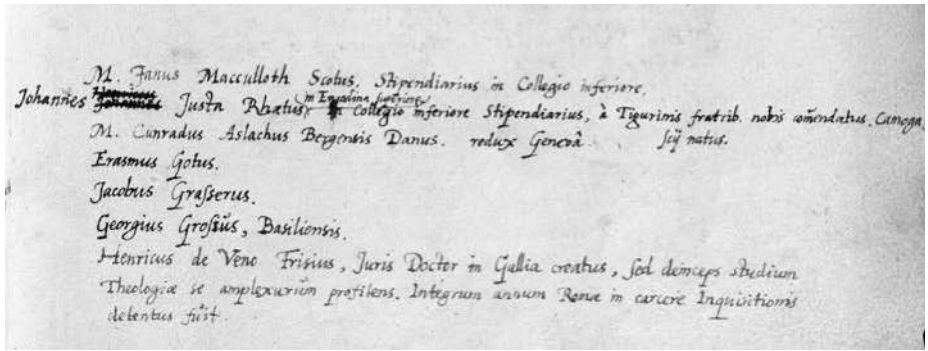 M. Janus Macculloth Scotus. Stipendiarius in Collegio inferiore.
in Engadina superiore
Johannes Justa Rhætus in Collegio inferiore Stipendiarius, à Tigurinis fratrib. nobis com̄endatus. Camoga
M. Cunradus Aslachus Bergensis Danus. redux Genevâ. scij natus.
Erasmus Gotus.
Jacobus Grasserus.
Georgius Grossŭs, Basiliensis.
Henricus de Veno Frisius, Juris Doctor in Gallia creatus, sed deinceps studium
Theologiæ se amplexurŭm profitens. Integrum annum Romæ in carcere Inquisitionis
detentus fŭit.